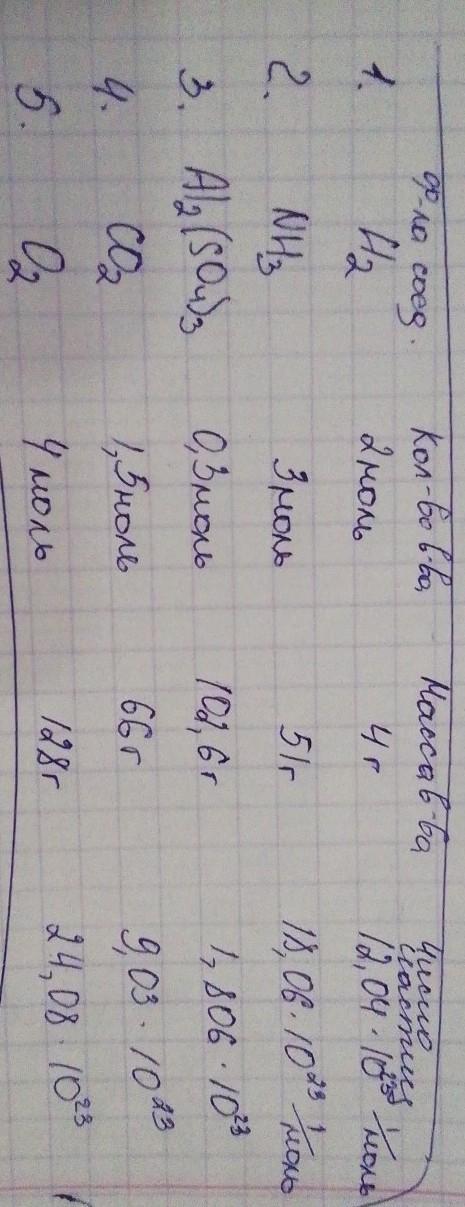 ф-ла соед. Кол-во в-ва Масса в-ва Число частиц
1. H₂ 2 моль 4 г 12,04 · 10²³ 1/моль
2. NH₃ 3 моль 51 г 18,06 · 10²³ 1/моль
3. Al₂(SO₄)₃ 0,3 моль 102,6 г 1,806 · 10²³
4. CO₂ 1,5 моль 66 г 9,03 · 10²³
5. O₂ 4 моль 128 г 24,08 · 10²³